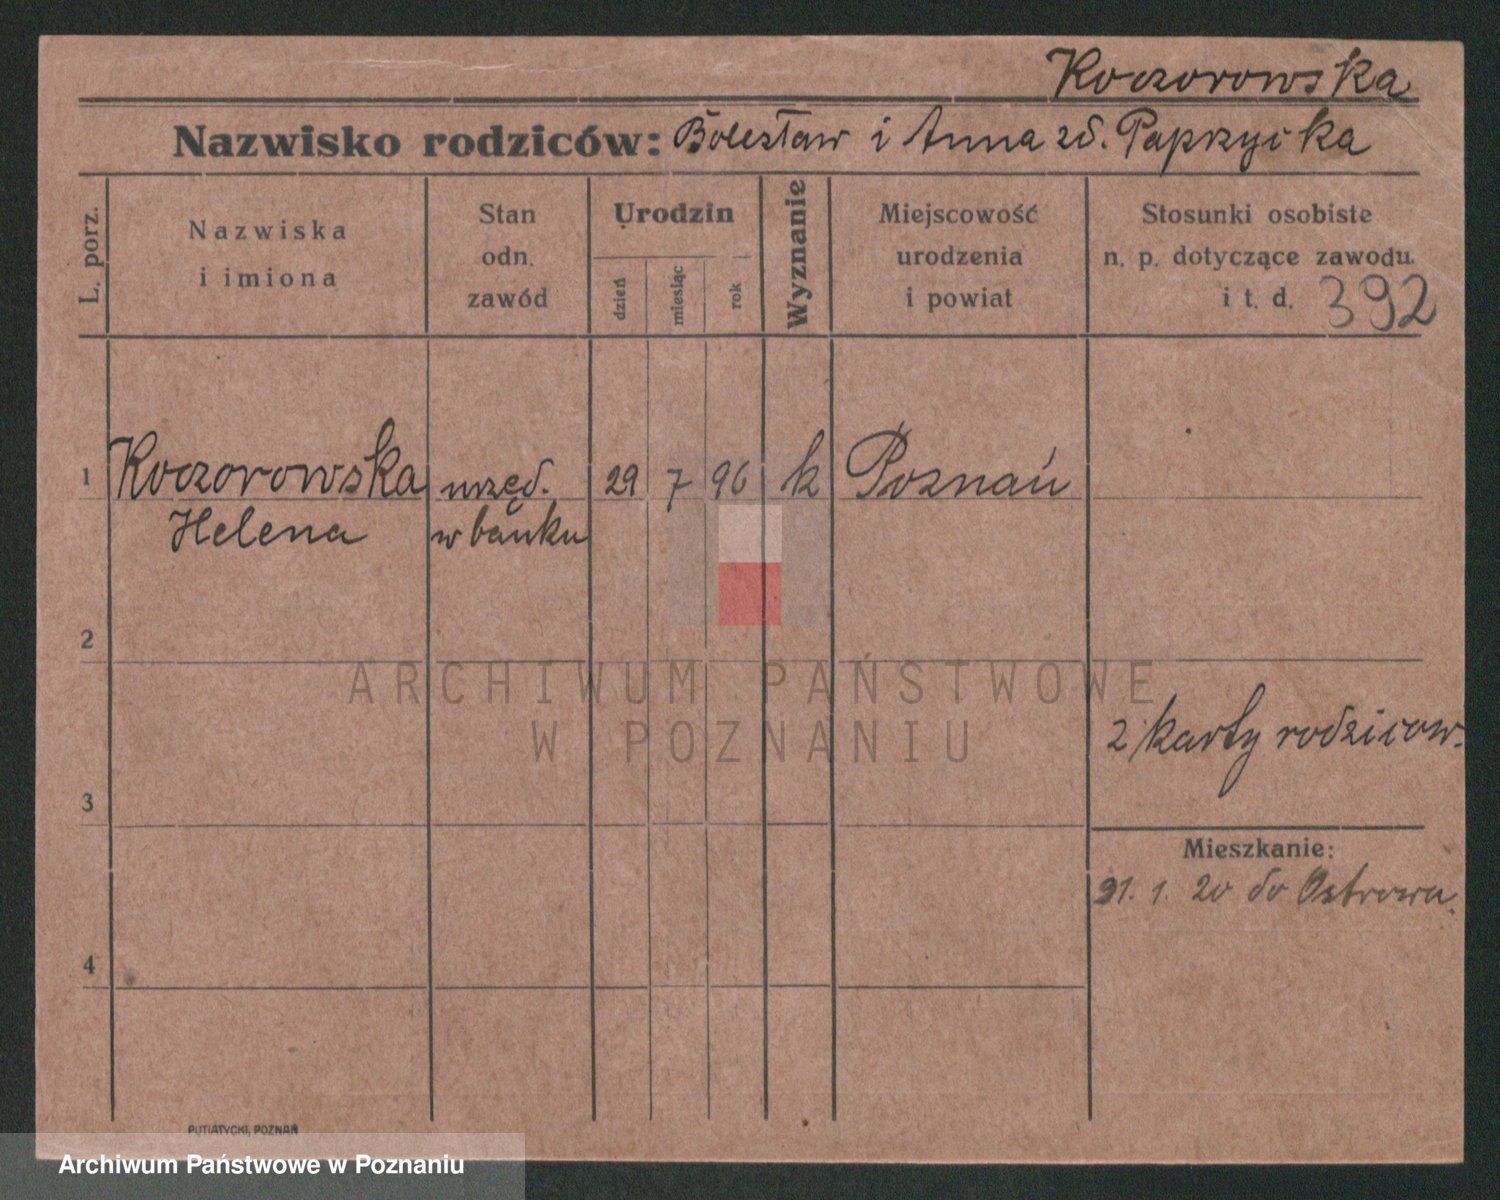 Koczorowska
Nazwisko rodziców: Bolesław i Anna zd. Paprzycka
L. porz.
Nazwiska
i imiona
Stan
odn.
zawód
Urodzin
dzień
miesiąc
rok
Wyznanie
Miejscowość
urodzenia
i powiat
Stosunki osobiste
n. p. dotyczące zawodu
i t. d. 392
1 Koczorowska urzęd. 29 7 96 k Poznań
Helena w banku
2
z karty rodziców.
3
Mieszkanie:
31. 1. 20 do Ostrowa.
4
PUTIATYCKI, POZNAŃ
ARCHIWUM PAŃSTWOWE
W POZNANIU
Archiwum Państwowe w Poznaniu